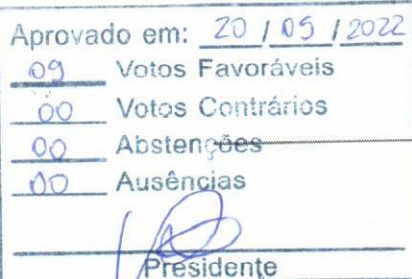 Aprovado em: 20 / 05 / 2022
09 Votos Favoráveis
00 Votos Contrários
00 Abstenções
00 Ausências
Presidente